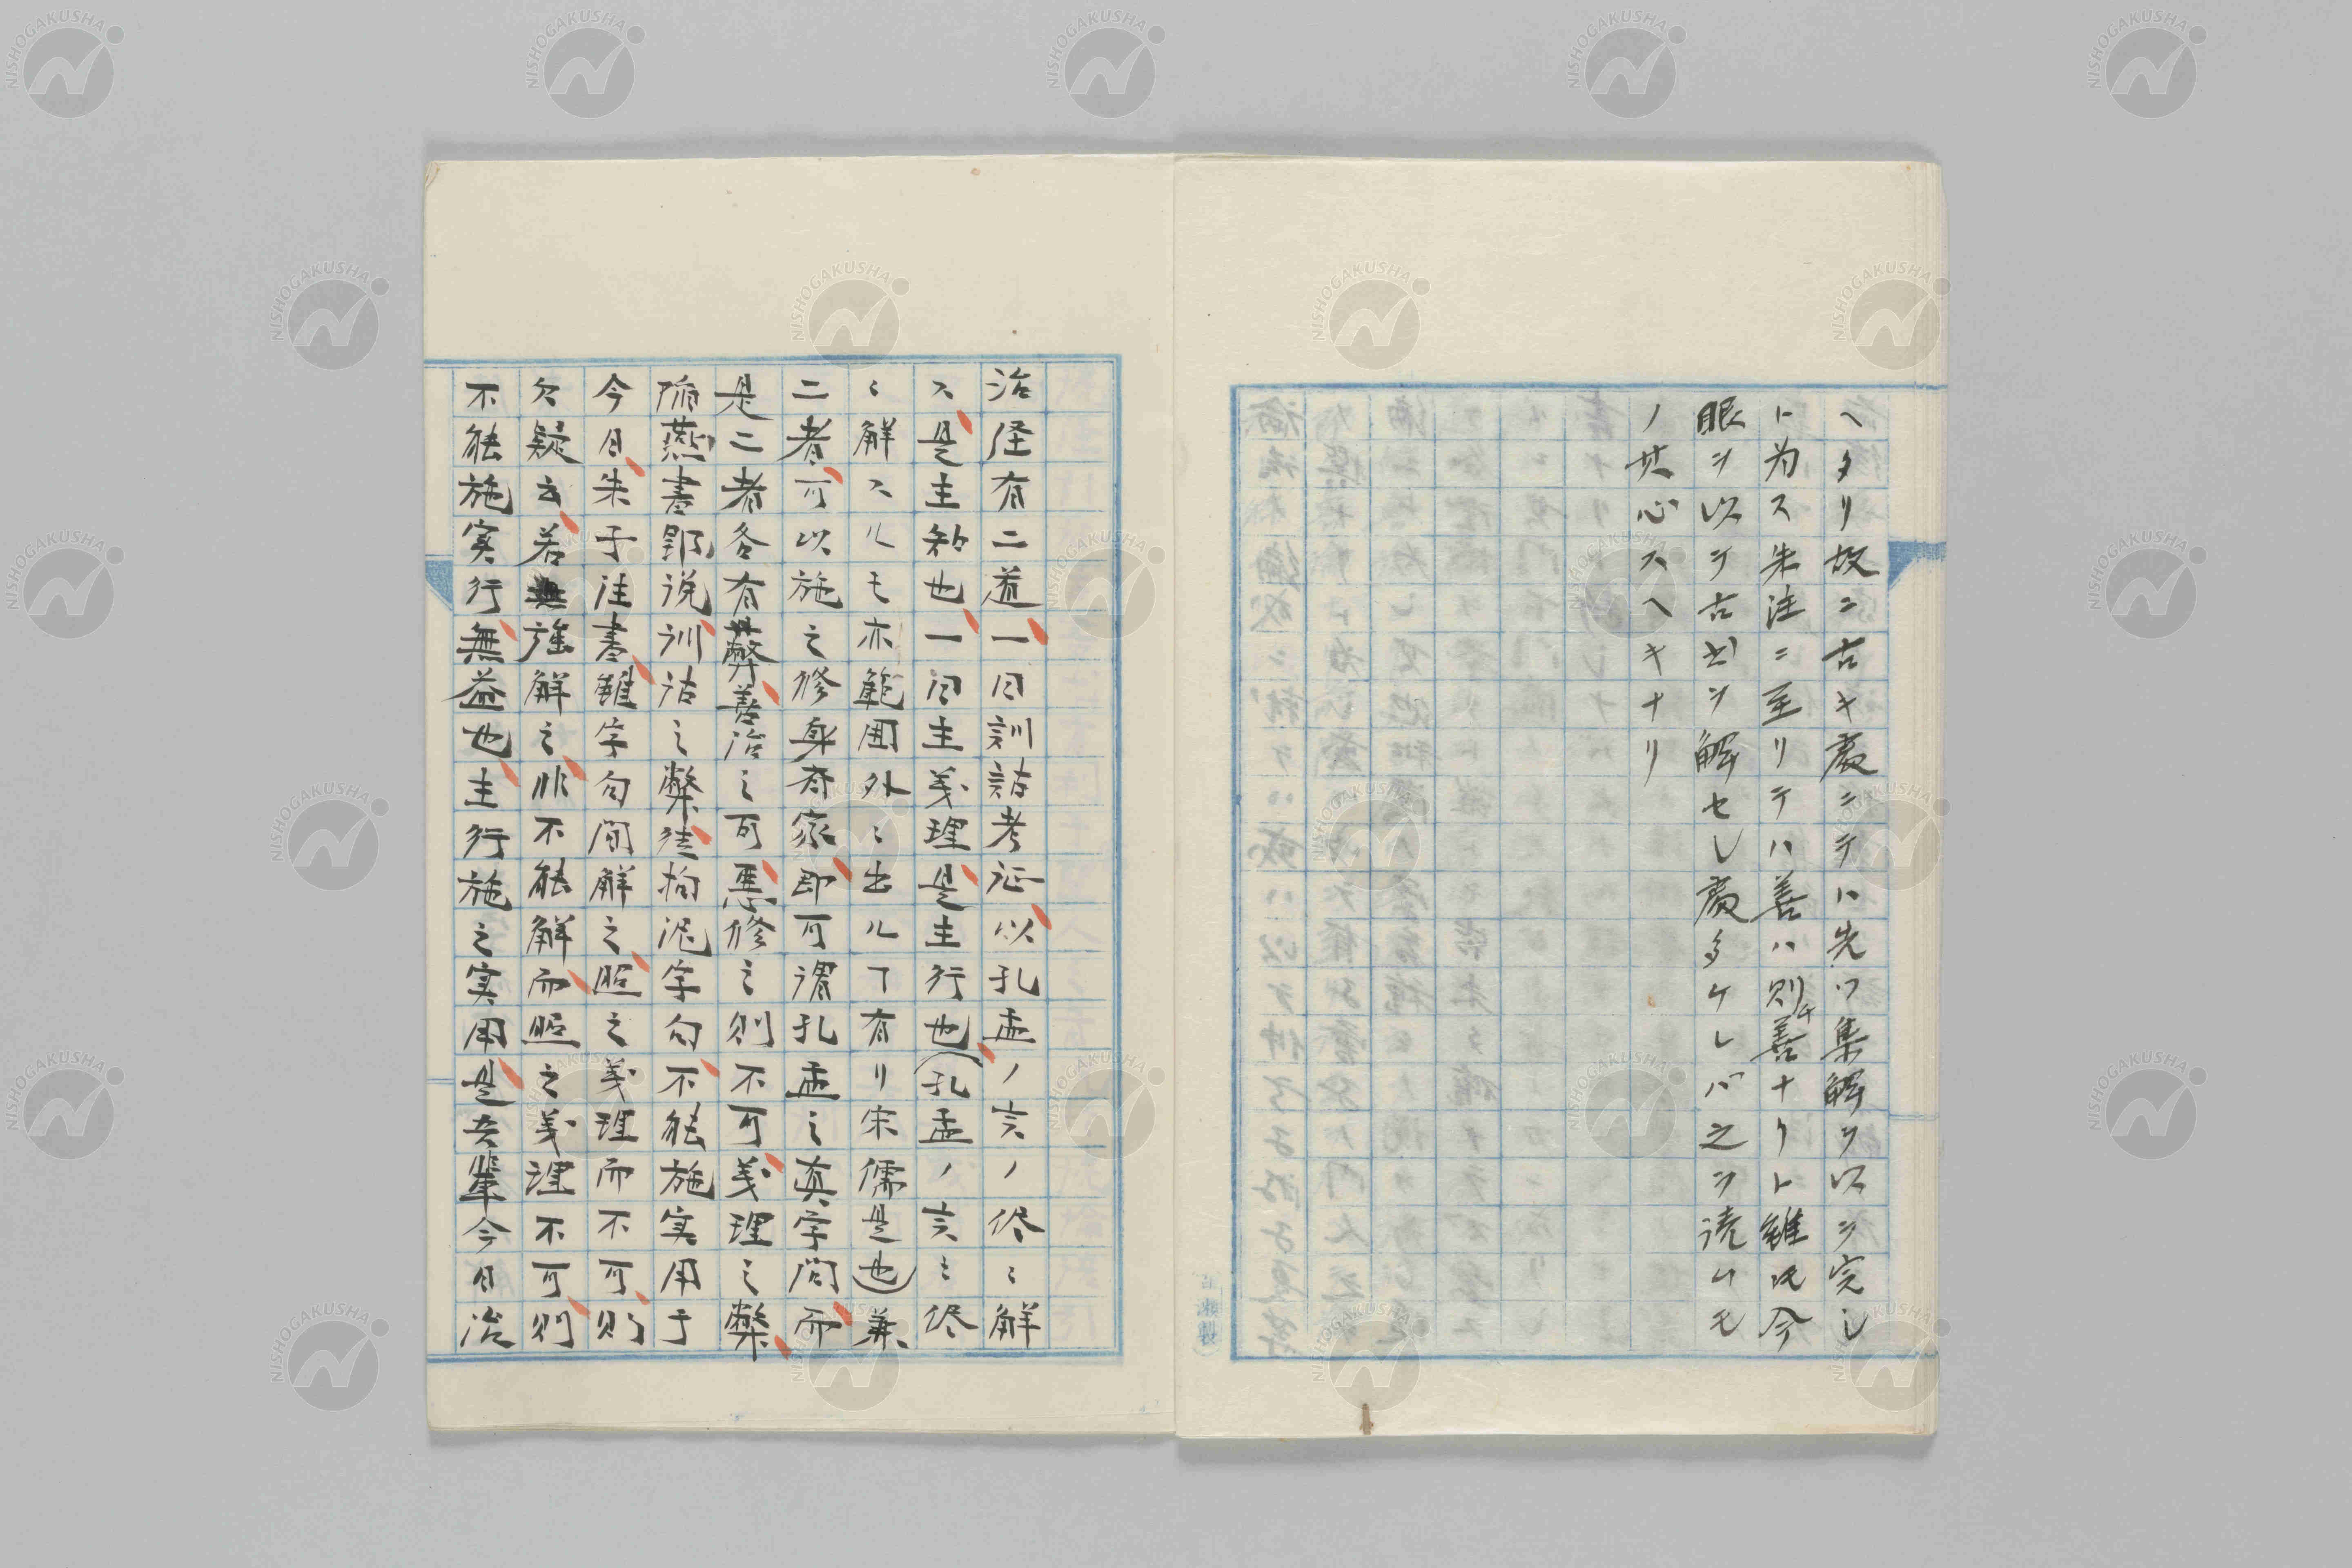 ヘタリ故ニ古キ處ニテハ先ツ集解ヲ以ヲ完シ
ト为ス朱注ニ至リテハ善ハ則チ善ナリト雖𪜈今
眼ヲ以テ古書ヲ解セシ處多ケレバ之ヲ読ムモ
ノ其心スヘキナリ
治怪有二道一曰訓詁考証以孔孟ノ言ノ侭ニ解
ス是主知也一曰主義理是主行也(孔孟ノ言ニ侭
ニ解スルモ亦範囲外ニ出ルヿ有リ宋儒是也)兼
二者可以施之修身斉家即可謂孔孟之真学問而
是二者各有弊善治之可悪修之則不可義理之弊
陥燕書郢説訓詁之弊徒拘泥字句不能施実用于
今日朱子注書雖字句間解之照之義理而不可則
欠疑云若強解之非不能解而照之義理不可則
不能施実行無益也主行施之実用是吾輩今日治
NISHOGAKUSHA